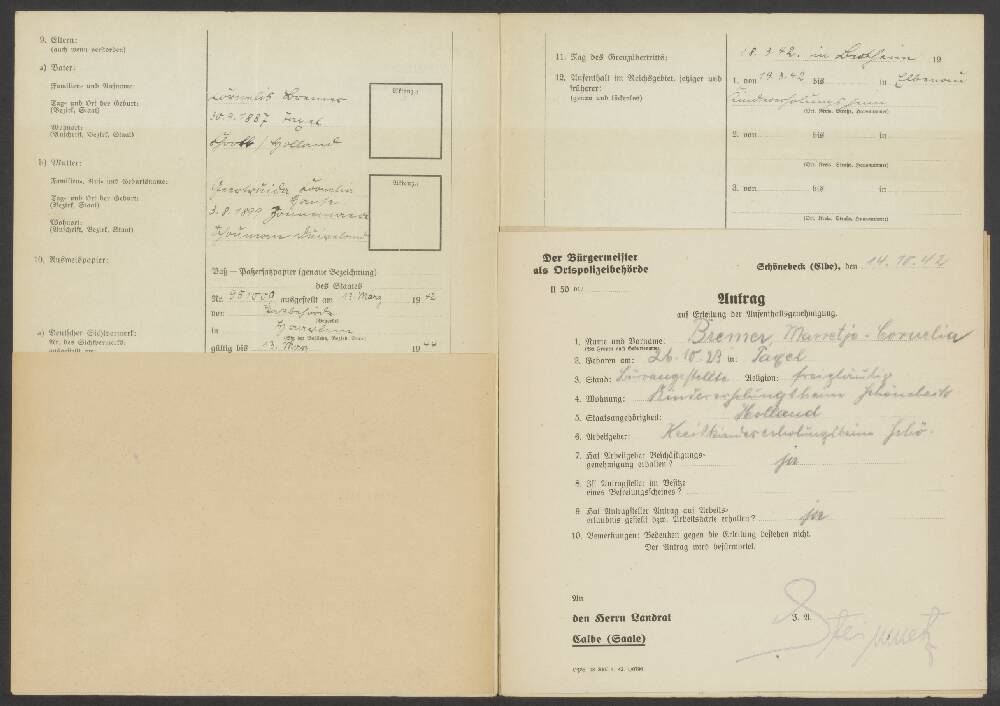 9. Eltern:
(auch wenn verstorben)
a) Vater:
Familien- und Rufname:
Cornelis Bremer
Tag und Ort der Geburt:
(Bezirk, Staat)
30.9.1887
Wohnort:
(Anschrift, Bezirk, Staat)
/ Holland
Aktenz.:
b) Mutter:
Familien-, Ruf- und Geburtsname:
Geertruida Cornelia
Tag- und Ort der Geburt:
(Bezirk, Staat)
3.8.1899 Zonnemaire
Wohnort:
(Anschrift, Bezirk, Staat)
Schouwen Duiveland
Aktenz.:
10. Ausweispapier:
Paß – Paßersatzpapier (genaue Bezeichnung)
des Staates
Nr. 951009 ausgestellt am 13. März 1942
von Passbehörde
(Behörde)
in Haarlem
(Sitz der Behörde, Bezirk, Staat)
gültig bis 13. März 1944
a) Deutscher Sichtvermerk:
Nr. des Sichtvermerks:
ausgestellt am:
11. Tag des Grenzübertritts:
18.3.42. in Bentheim 19
12. Aufenthalt im Reichsgebiet, jetziger und
früherer:
(genau und lückenlos)
1. von 19.3.42 bis in Elbenau
Kindererholungsheim
(Ort, Kreis, Straße, Hausnummer)
2. von bis in
(Ort, Kreis, Straße, Hausnummer)
3. von bis in
(Ort, Kreis, Straße, Hausnummer)
Der Bürgermeister
als Ortspolizeibehörde
Schönebeck (Elbe), den 14.10.42
II 50 m/
Antrag
auf Erteilung der Aufenthaltsgenehmigung.
1. Name und Vorname: Bremer, Marretje-Cornelia
(Bei Frauen auch Geburtsname)
2. Geboren am: 26.10.23 in:
3. Stand: Büroangestellte Religion: freigläubig
4. Wohnung: Kindererholungsheim Schönebeck
5. Staatsangehörigkeit: Holland
6. Arbeitgeber: Kreiskindererholungsheim Schö.
7. Hat Arbeitgeber Beschäftigungs-
genehmigung erhalten? ja
8. Ist Antragsteller im Besitze
eines Befreiungsscheines?
9. Hat Antragsteller Antrag auf Arbeits-
erlaubnis gestellt bzw. Arbeitskarte erhalten? ja
10. Bemerkungen: Bedenken gegen die Erteilung bestehen nicht.
Der Antrag wird befürwortet.
An
den Herrn Landrat
Calbe (Saale)
I. A.
Steinmetz